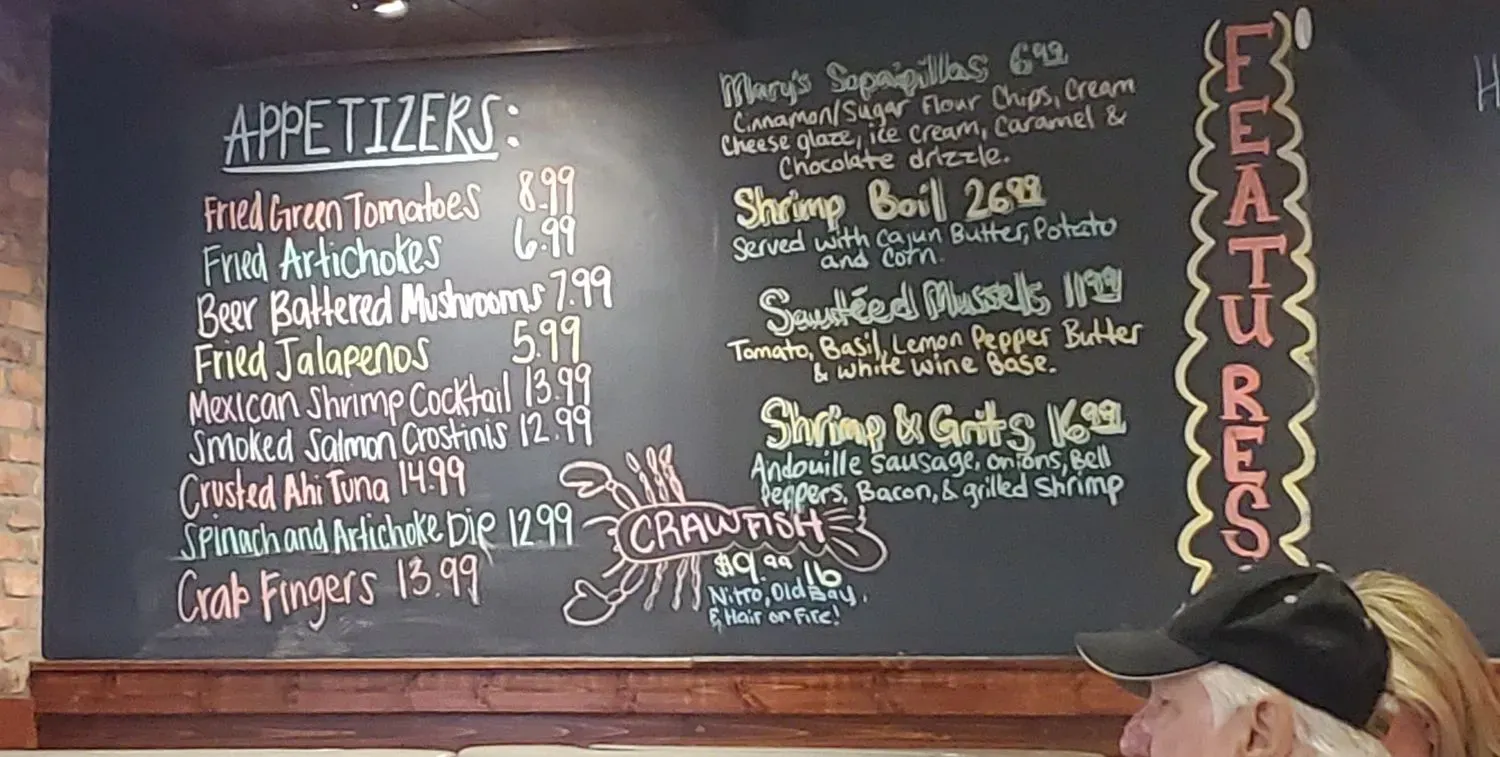 APPETIZERS:
Fried Green Tomatoes 8.99
Fried Artichokes 6.99
Beer Battered Mushrooms 7.99
Fried Jalapenos 5.99
Mexican Shrimp Cocktail 13.99
Smoked Salmon Crostinis 12.99
Crusted Ahi Tuna 14.99
Spinach and Artichoke Dip 12.99
Crab Fingers 13.99
Mary's Sopaipillas 6.99
Cinnamon/Sugar Flour Chips, Cream
Cheese glaze, ice cream, Caramel &
Chocolate drizzle.
Shrimp Boil 26.99
Served with Cajun Butter, Potato
and Corn.
Sautéed Mussels 11.99
Tomato, Basil, Lemon Pepper Butter
& white wine Base.
Shrimp & Grits 16.99
Andouille Sausage, onions, Bell
Peppers, Bacon, & grilled Shrimp
CRAWFISH
$9.99 lb
Nitro, Old Bay,
& Hair on Fire!
FEATURES
H